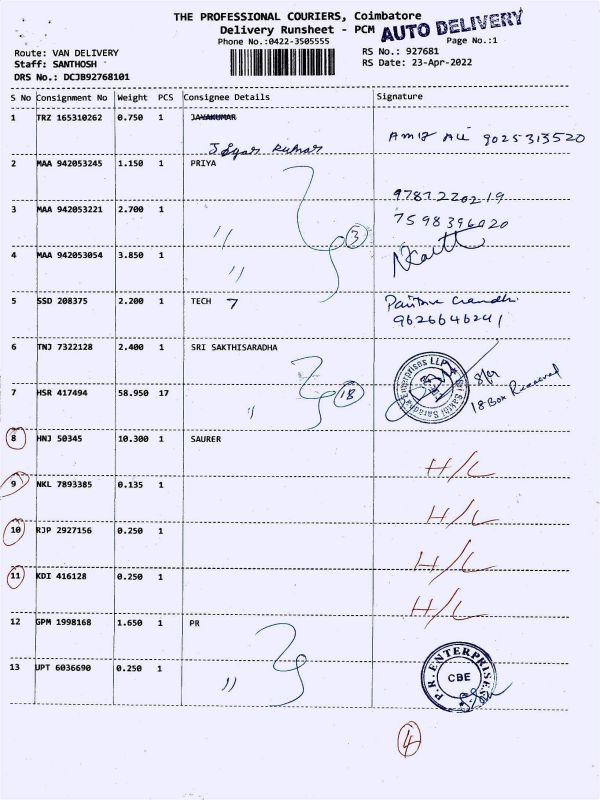 THE PROFESSIONAL COURIERS, Coimbatore
AUTO DELIVERY
Delivery Runsheet - PCM
Phone No.:0422-3505555
Page No.:1
Route: VAN DELIVERY
RS No.: 927681
Staff: SANTHOSH
RS Date: 23-Apr-2022
DRS No.: DCJB92768101
S No Consignment No Weight PCS Consignee Details Signature
1 TRZ 165310262 0.750 1 JAYAKUMAR
Kumar
9025313520
2 MAA 942053245 1.150 1 PRIYA
9787220219
3 MAA 942053221 2.700 1 "
3
4 MAA 942053054 3.850 1 "
5 SSD 208375 2.200 1 TECH 7
9626646241
6 TNJ 7322128 2.400 1 SRI SAKTHISARADHA
Sri Sakthi Saradha Enterprises LLP
7 HSR 417494 58.950 17 "
18
18 Box Received
8 HNJ 50345 10.300 1 SAURER
H/L
9 NKL 7893385 0.135 1
H/L
10 RJP 2927156 0.250 1
H/L
11 KDI 416128 0.250 1
H/L
12 GPM 1998168 1.650 1 PR
13 UPT 6036690 0.250 1 "
P.R. ENTERPRISE
CBE
4